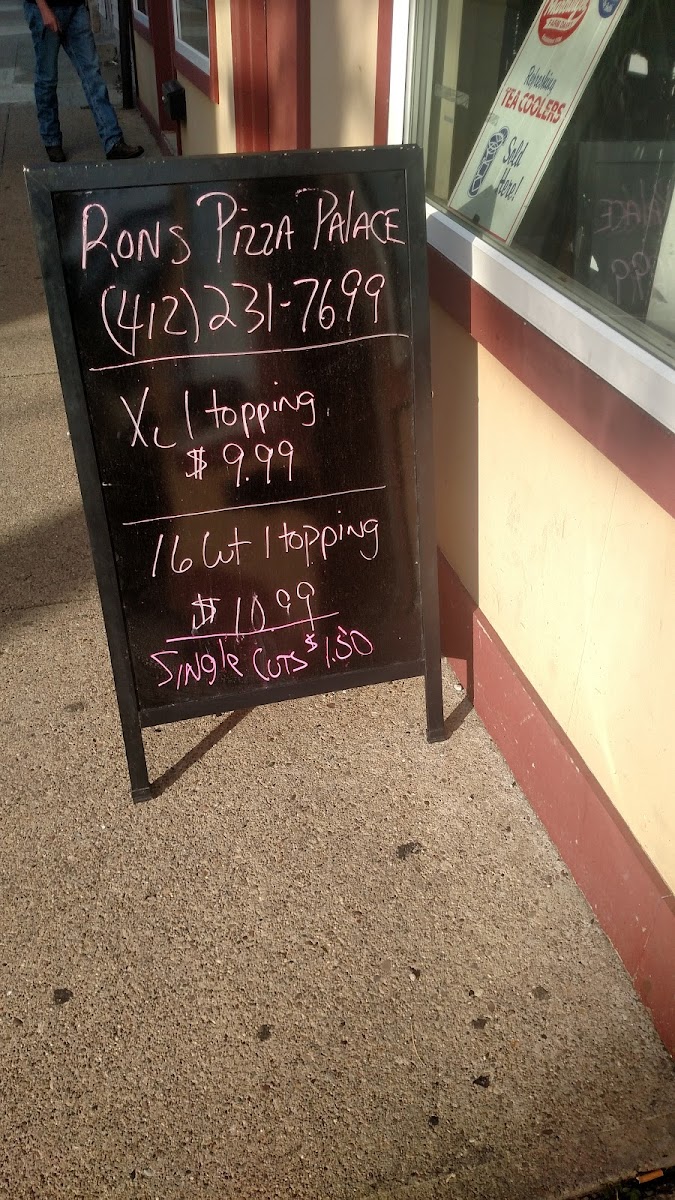 Rons Pizza Palace
(412) 231-7699
XL 1 topping
$ 9.99
16 Cut 1 topping
$ 10.99
Single Cuts $1.50
Refreshing
TEA COOLERS
Sold
Here!